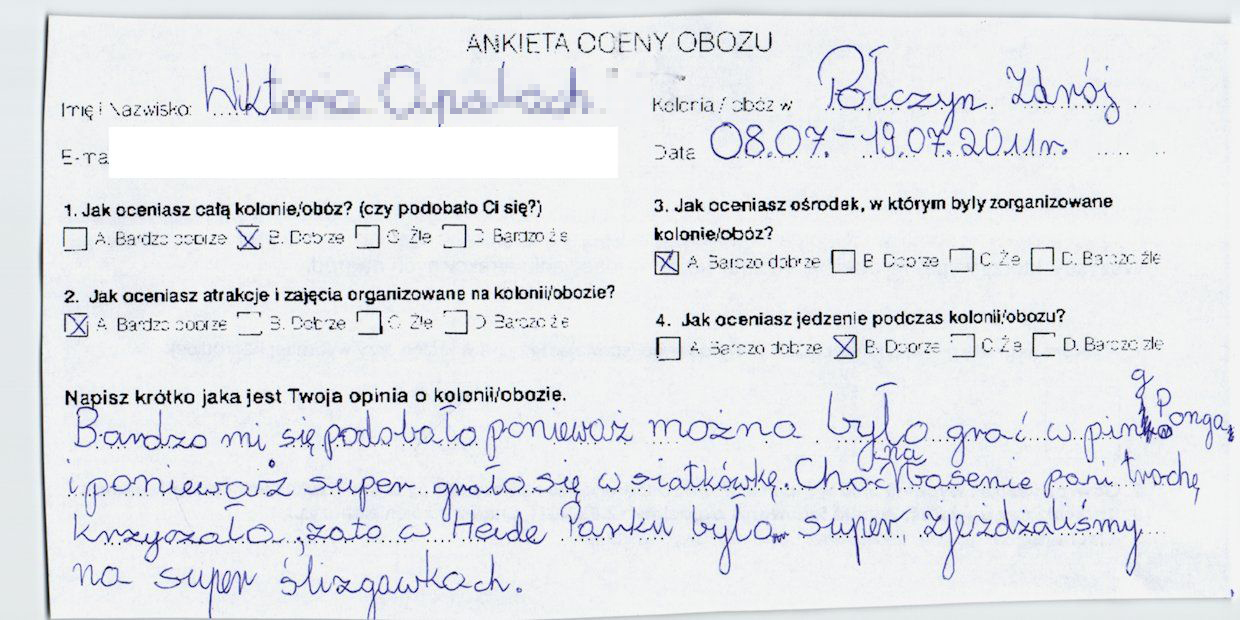 ANKIETA OCENY OBOZU
Imię i Nazwisko: Wiktoria
Kolonia / obóz w Połczyn Zdrój
E-ma
Data 08.07.-19.07.2011r.
1. Jak oceniasz całą kolonie/obóz? (czy podobało Ci się?)
A. Bardzo dobrze B. Dobrze C. Źle D. Bardzo źle
2. Jak oceniasz atrakcje i zajęcia organizowane na kolonii/obozie?
A. Bardzo dobrze B. Dobrze C. Źle D. Bardzo źle
3. Jak oceniasz ośrodek, w którym były zorganizowane
kolonie/obóz?
A. Bardzo dobrze B. Dobrze C. Źle D. Bardzo źle
4. Jak oceniasz jedzenie podczas kolonii/obozu?
A. Bardzo dobrze B. Dobrze C. Źle D. Bardzo źle
Napisz krótko jaka jest Twoja opinia o kolonii/obozie.
Bardzo mi się podobało ponieważ można było grać w ping Ponga,
i ponieważ super grało się w siatkówkę. Choć na basenie pani trochę
krzyszała, zato w Heide Parku było super, zjeżdżaliśmy
na super ślizgawkach.